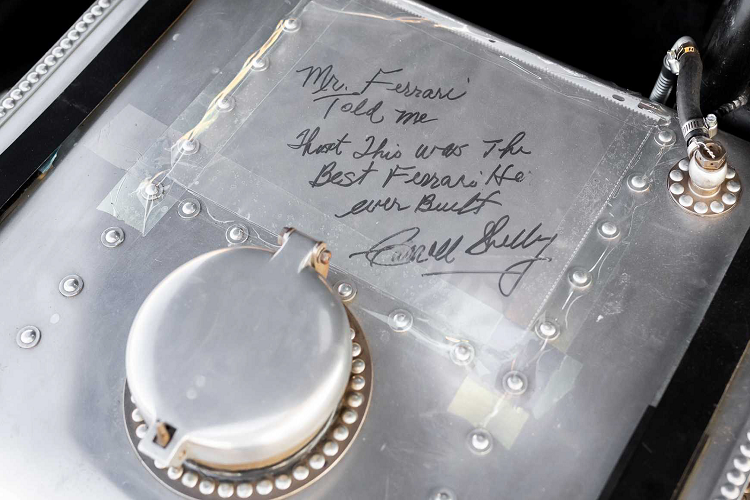 Mr. Ferrari
Told me
That This was The
Best Ferrari He
ever Built
Carroll Shelby